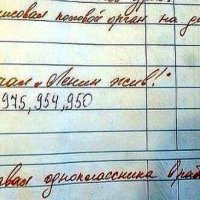 рисовал половой орган на д
чал „Ленин жив!"
975, 954, 950
вал одноклассника Ораб